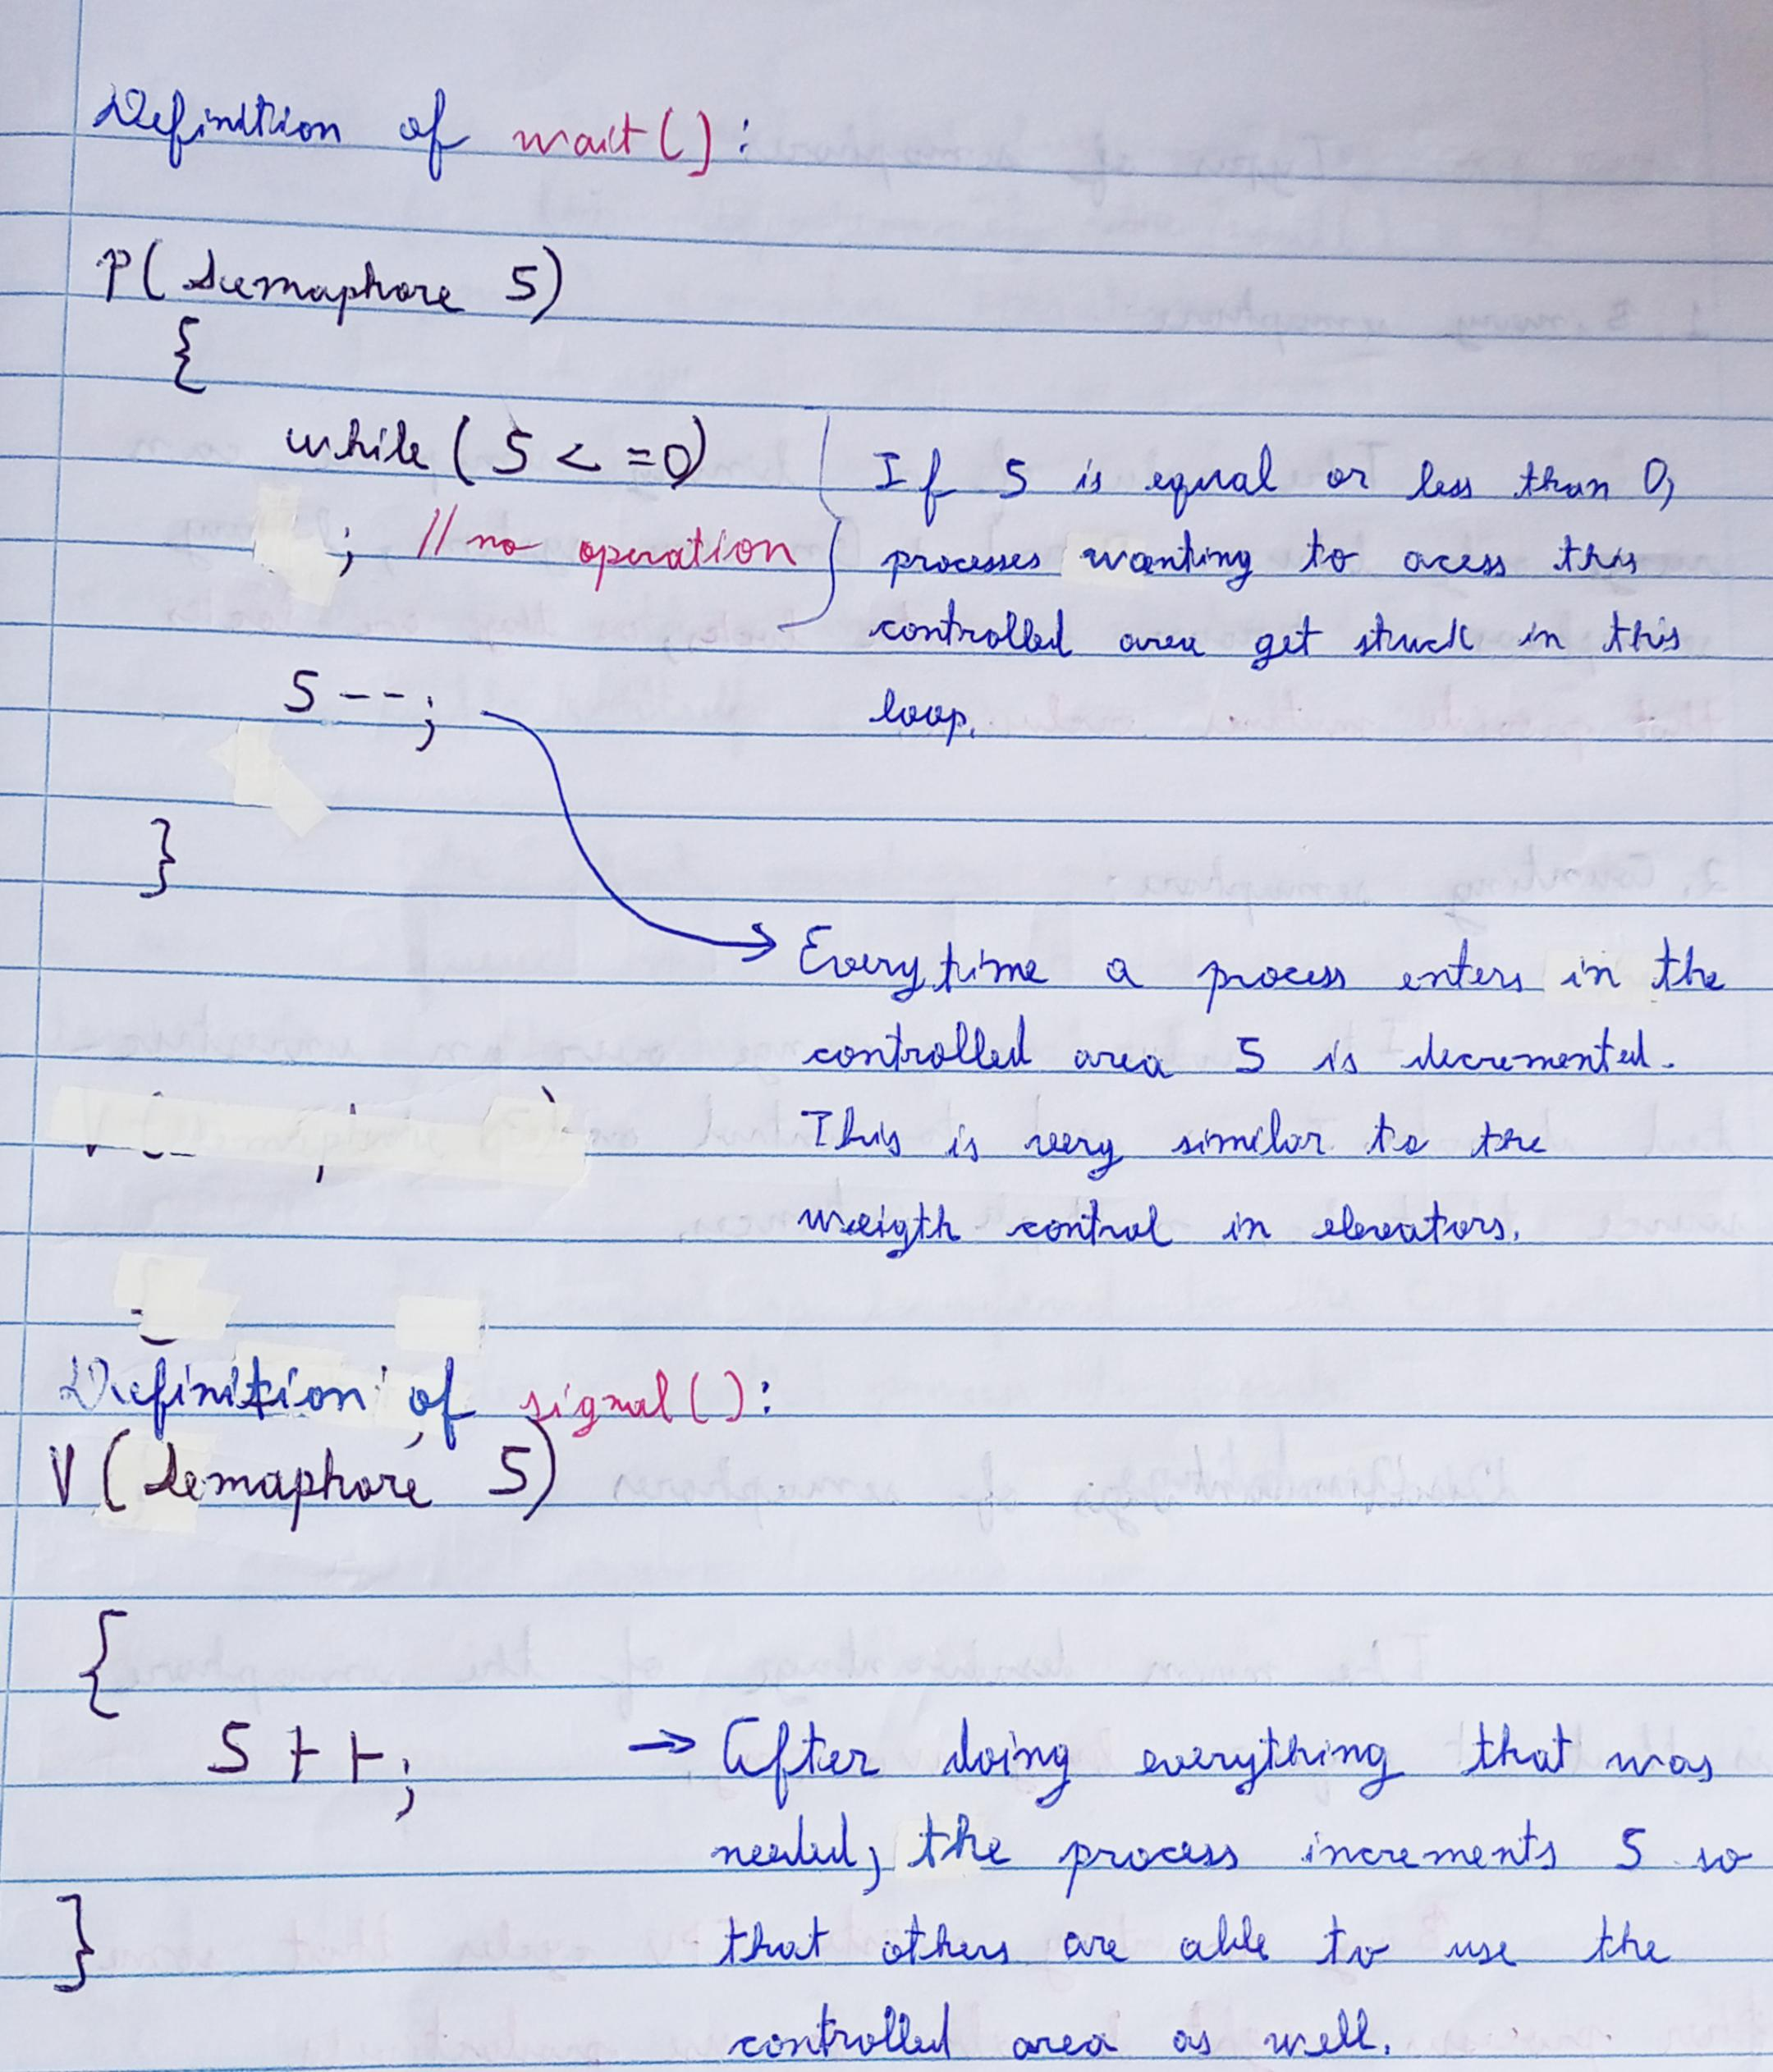 Definition of wait():
P(Semaphore S)
{
while(S<=0)
; //no operation
If S is equal or less than 0,
processes wanting to acess this
controlled area get stuck in this
loop.
S--;
}
Everytime a process enters in the
controlled area S is decremented.
This is very similar to the
weigth control in elevators.
Definition of signal():
V(Semaphore S)
{
S++;
→ After doing everything that was
needed, the process increments S so
that others are able to use the
controlled area as well.
}